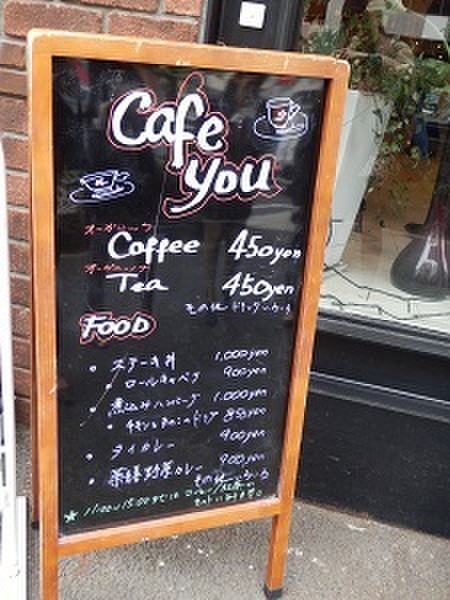 Cafe
you
オーガニック
Coffee 450yen
オーガニック
Tea 450yen
その他 ドリンクいろいろ
FOOD
• ステーキ丼 1,000yen
• ロールキャベツ 900yen
• 煮込みハンバーグ 1,000yen
• チキンときのこのドリア 850yen
• タイカレー 900yen
• 薬膳野菜カレー 900yen
その他いろいろ
★ 11:00~15:00まで